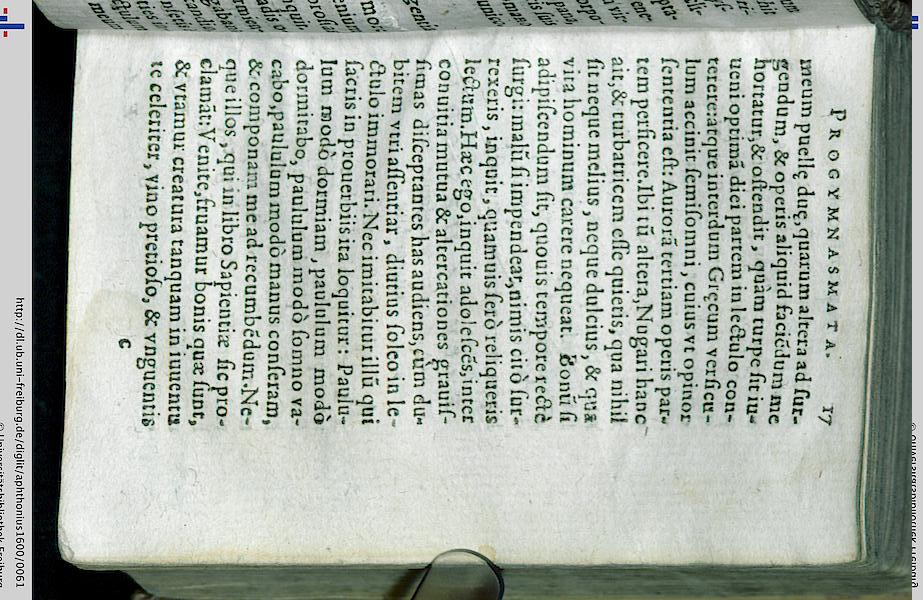 PROGYMNASMATA. 17
meum puellę duę, quarum altera ad sur-
gendum, & operis aliquid faciēdum me
hortatur, & ostendit, quàm turpe sit iu-
ueni optimā diei partem in lectulo con-
terere: atque interdum Gręcum versicu-
lum accinit semisomni, cuius vt opinor
sententia est: Aurorā tertiam operis par-
tem perficere. Ibi tū altera, Nugari hanc
ait, & turbatricem esse quietis, qua nihil
sit neque melius, neque dulcius, & quā
vita hominum carere nequeat. Bonū si
adipiscendum sit, quouis tempore rectè
surgi: malū si impendeat, nimis citò sur-
rexeris, inquit, quamuis serò reliqueris
lectum. Hæc ego, inquit adolescēs, inter
conuitia mutua & altercationes grauis-
simas disceptantes has audiens, cùm du-
bitem vtri assentiar, diutius soleo in le-
ctulo immorari. Nec imitabitur illū qui
sacris in prouerbiis ita loquitur: Paulu-
lum modò dormiam, paululum modò
dormitabo, paululum modò somno va-
cabo, paululum modò manus conseram,
& componam me ad recumbēdum. Ne-
que illos, qui in libro Sapientiæ sic pro-
clamāt: Venite, fruamur bonis quæ sunt,
& vtamur creatura tanquam in iuuentu
te celeriter, vino pretioso, & vnguentis
c
http://dl.ub.uni-freiburg.de/diglit/aphthonius1600/0061
© Universitätsbibliothek Freiburg